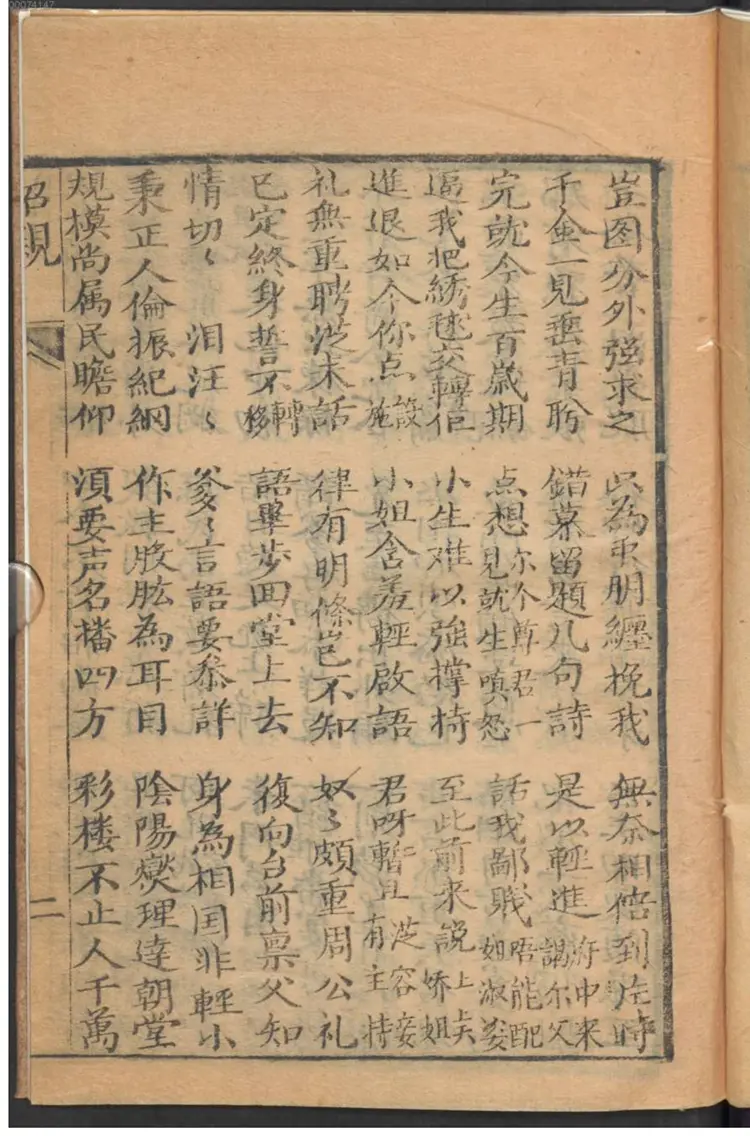 00074147
豈图分外强求之 只為用朋纏挽我 無奈相偕到此時
千金一見垂青盼 錯慕留題几句詩 是以輕進府中来謁尔父
完就今生百歲期 点想尔个尊君一見就生嗔怒 話我鄙賎唔能配如淑媛
逼我把綉毬交轉佢 小生难以強撑持 至此前来說上矣娇姐
進退如今你点設施 小姐含羞輕啟語 君呀暫且有主持 芝容妾
礼無重聘芝未話 律有明條豈不知 奴々頗重周公礼
已定終身誓不轉移 語畢步回堂上去 復向台前禀父知
情切々 泪汪々 爹々言語要叅詳 身為相国非輕小
秉正人倫振紀綱 作主股肱為耳目 陰陽燮理達朝堂
規模尚属民瞻仰 湏要声名播四方 彩楼不止人千萬
招親
二